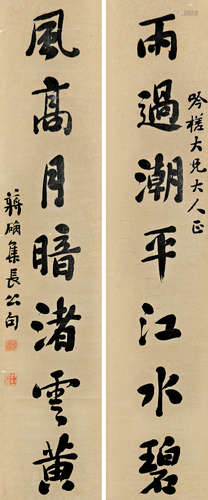 吟槎大兄大人正
雨過潮平江水碧
風高月暗渚雲黃
蔣确集長公句